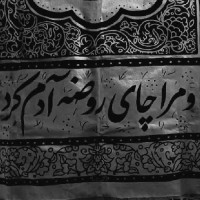 و مرا چای روضه آدم کرد